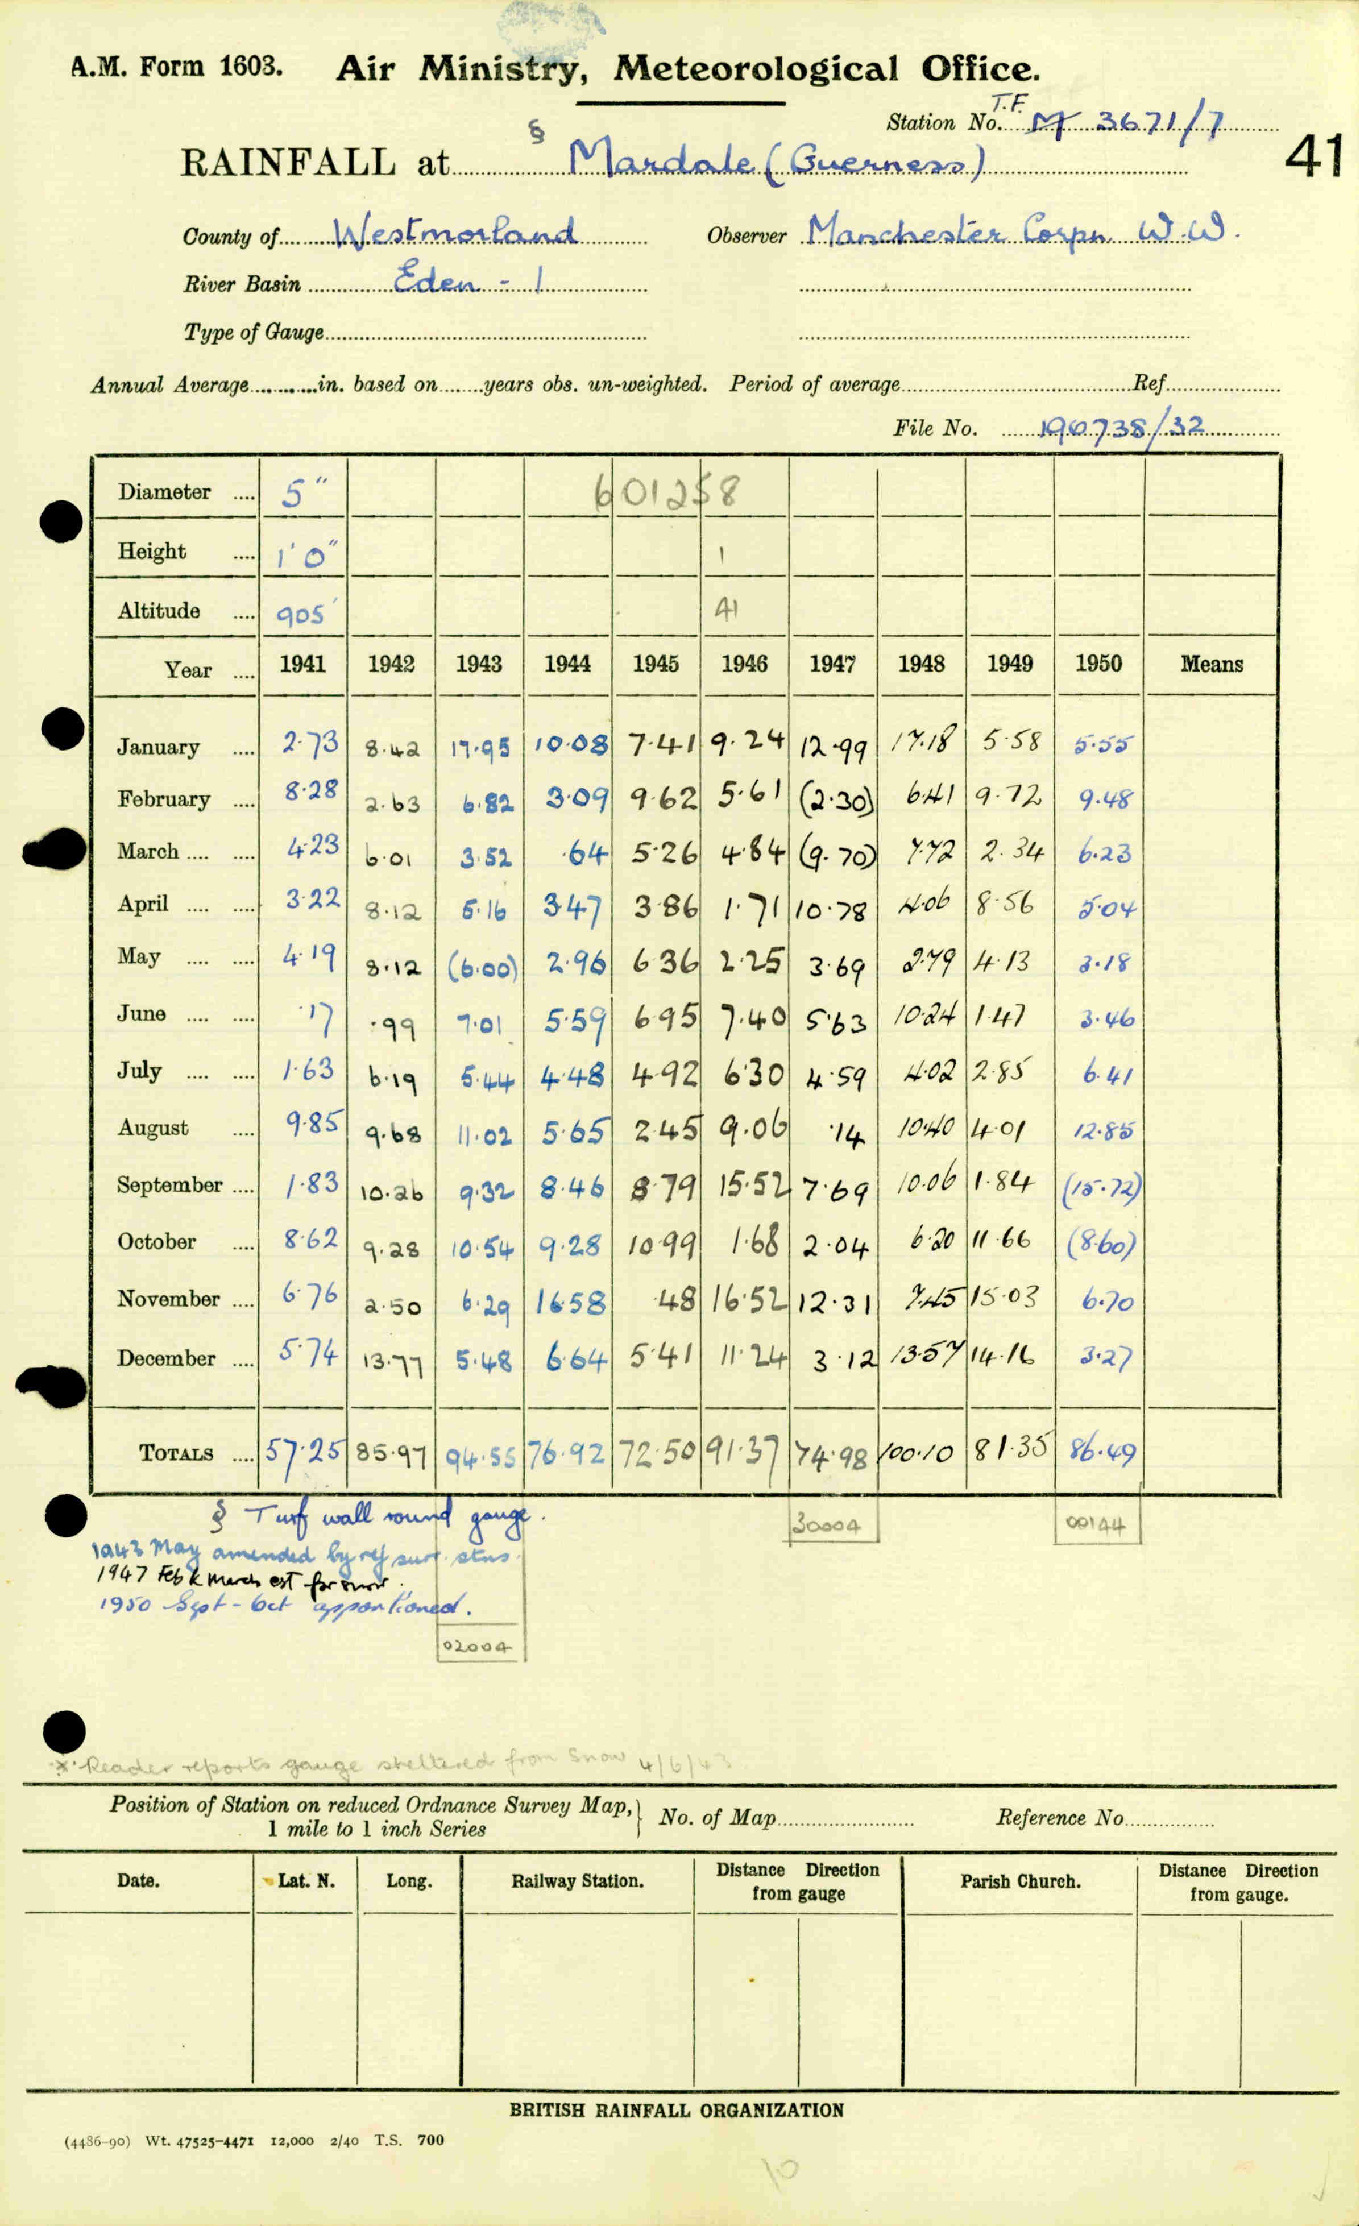 A.M. Form 1603. Air Ministry, Meteorological Office.
T.F.
Station No. M 3671/7
§
RAINFALL at Mardale (Guerness)
41
County of Westmorland Observer Manchester Corpn. W.W.
River Basin Eden - 1
Type of Gauge
Annual Average in. based on years obs. un-weighted. Period of average Ref.
File No. 190738/32
Diameter .... 5" 601258
Height .... 1'0" 1
Altitude .... 905' 41
Year .... 1941 1942 1943 1944 1945 1946 1947 1948 1949 1950 Means
January .... 2.73 8.42 17.95 10.08 7.41 9.24 12.99 17.18 5.58 5.55
February .... 8.28 2.63 6.82 3.09 9.62 5.61 (2.30) 6.41 9.72 9.48
March .... .... 4.23 6.01 3.52 .64 5.26 4.84 (9.70) 7.72 2.34 6.23
April .... .... 3.22 8.12 5.16 3.47 3.86 1.71 10.78 4.06 8.56 5.04
May .... .... 4.19 8.12 (6.00) 2.96 6.36 2.25 3.69 2.79 4.13 3.18
June .... .... .17 .99 7.01 5.59 6.95 7.40 5.63 10.24 1.47 3.46
July .... .... 1.63 6.19 5.44 4.48 4.92 6.30 4.59 4.02 2.85 6.41
August .... 9.85 9.68 11.02 5.65 2.45 9.06 .14 10.40 4.01 12.85
September .... 1.83 10.26 9.32 8.46 8.79 15.52 7.69 10.06 1.84 (15.72)
October .... 8.62 9.28 10.54 9.28 10.99 1.68 2.04 6.20 11.66 (8.60)
November .... 6.76 2.50 6.29 16.58 .48 16.52 12.31 7.45 15.03 6.70
December .... 5.74 13.77 5.48 6.64 5.41 11.24 3.12 13.57 14.16 3.27
TOTALS .... 57.25 85.97 94.55 76.92 72.50 91.37 74.98 100.10 81.35 86.49
§ Turf wall round gauge.
30004 00144
1943 May amended by ref surr. stns.
1947 Feb & March est for snow.
1950 Sept - Oct apportioned.
02004
* Reader reports gauge sheltered from Snow 4/6/43
Position of Station on reduced Ordnance Survey Map, } No. of Map Reference No.
1 mile to 1 inch Series
Date. Lat. N. Long. Railway Station. Distance Direction from gauge Parish Church. Distance Direction from gauge.
BRITISH RAINFALL ORGANIZATION
(4486-90) Wt. 47525-4471 12,000 2/40 T.S. 700
10